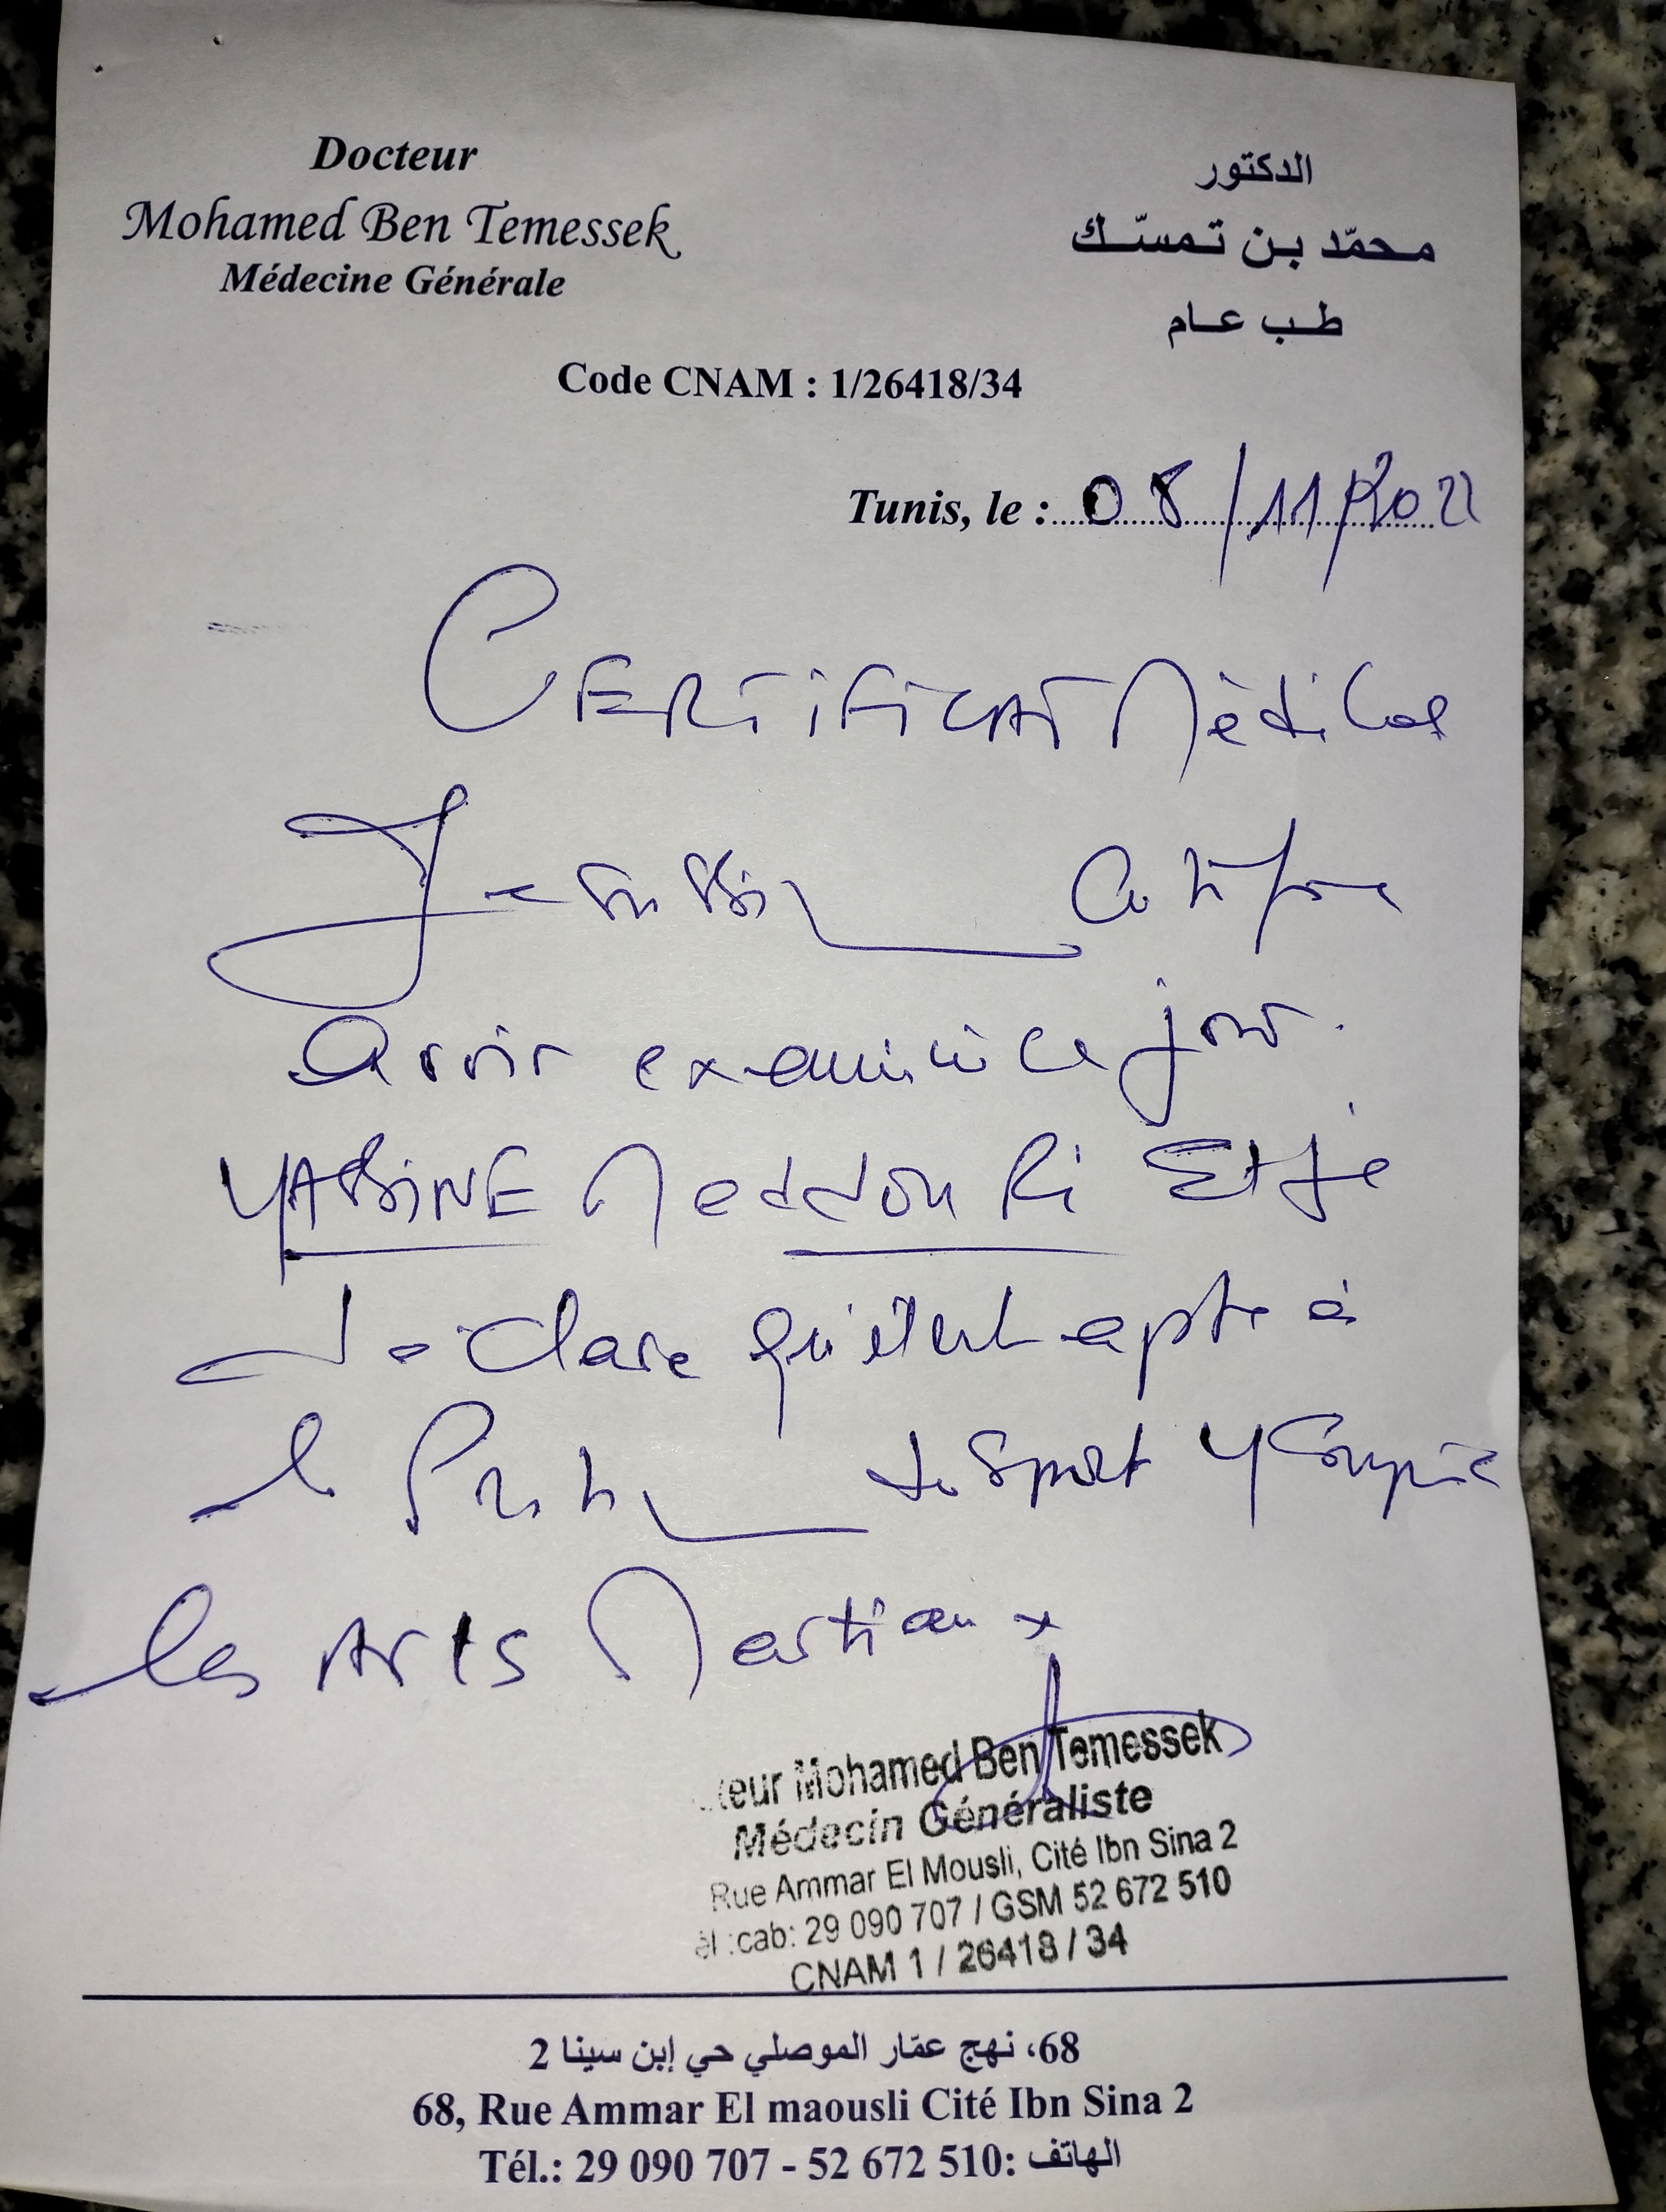 Docteur
Mohamed Ben Temessek
Médecine Générale
الدكتور
محمّد بن تمسّك
طب عام
Code CNAM : 1/26418/34
Tunis, le : 08/11/2022
CERTIFICAT Médical
Je soussigné certifie
avoir examiné ce jour
YASSINE Meddouri Et je
déclare qu'il est apte à
la Pratique de Sport Y Compris
les Arts Martiaux
teur Mohamed Ben Temessek
Médecin Généraliste
Rue Ammar El Mousli, Cité Ibn Sina 2
él :cab: 29 090 707 / GSM 52 672 510
CNAM 1 / 26418 / 34
68، نهج عمّار الموصلي حي إبن سينا 2
68, Rue Ammar El maousli Cité Ibn Sina 2
Tél.: 29 090 707 - 52 672 510: الهاتف